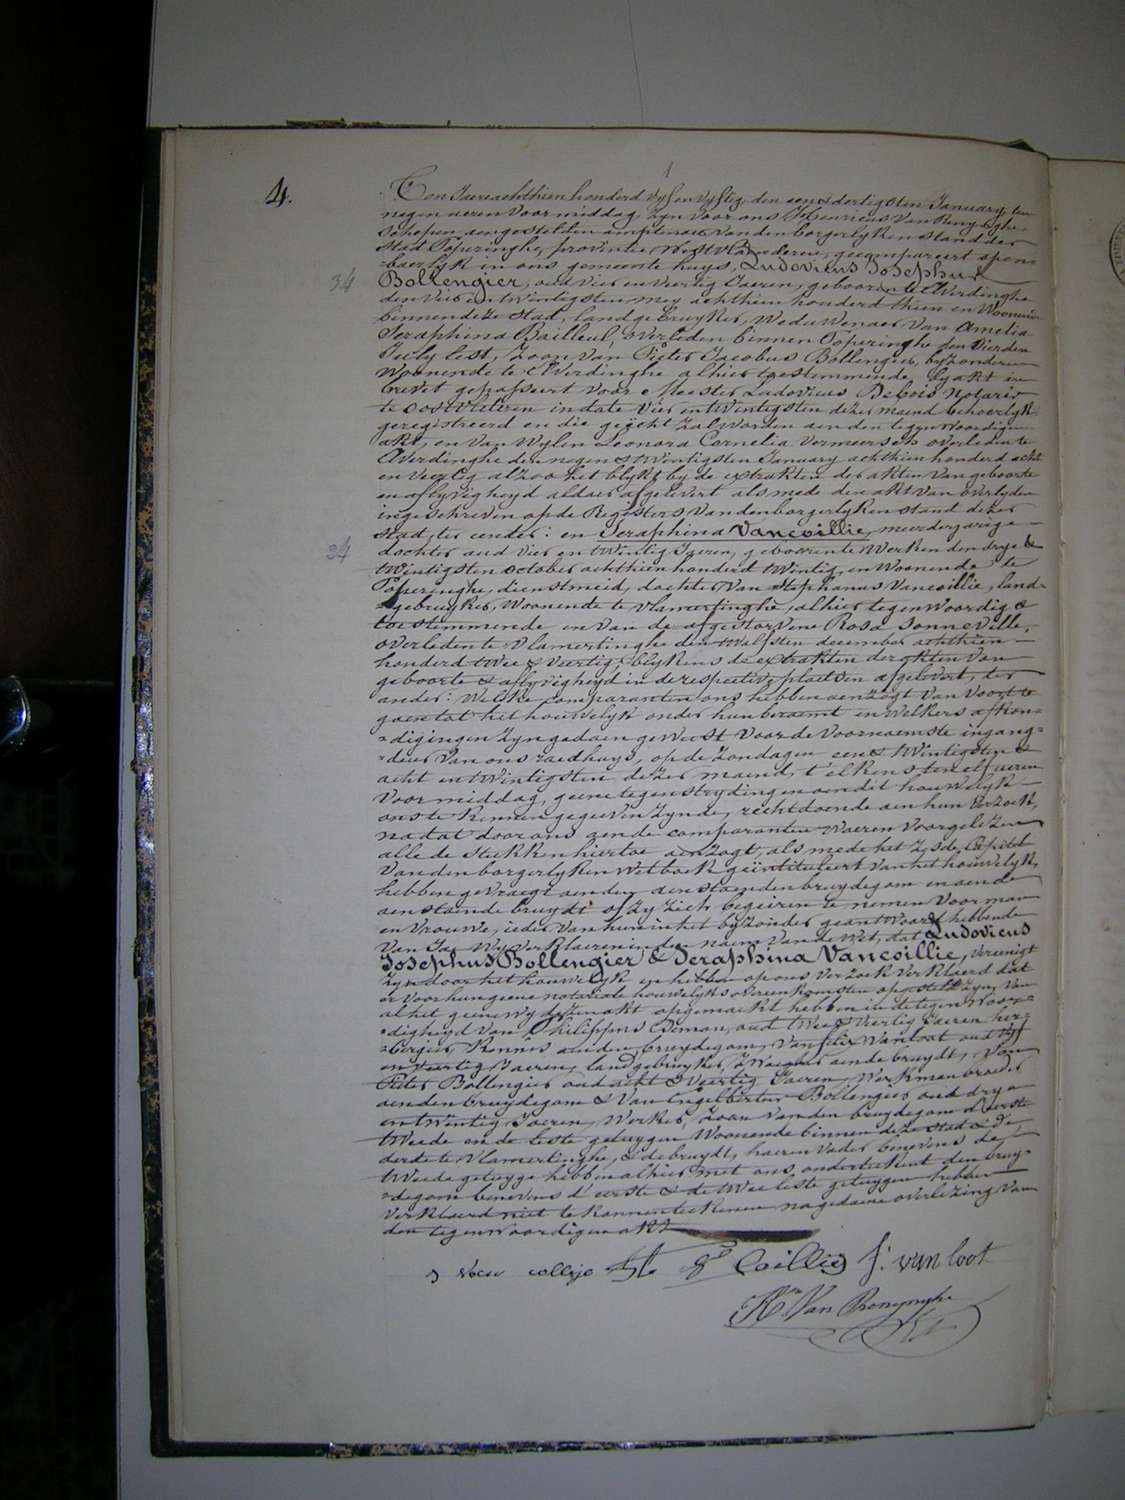 4.
Ten Jaere achthien honderd vyf en vyftig den een & dertigsten January ten
negen ueren voor middag, zyn voor ons Henricus Van Renynghe
schepen aengestelden amptenaer van den borgerlyken stand der
stad Poperinghe, provintie West Vlaenderen, gecompareert open-
=baerlyk in ons gemeente huys, Ludovicus Josephus
34
Bollengier, oud vier en veertig Jaeren, gebooren te Elverdinghe
den vier en twintigsten mey achthien honderd thien en Woonende
binnen deze stad, landgebruyker, Weduwenaer Van Amelia
Seraphina Bailleul, overleden binnen Poperinghe den vierden
July lest, zoon van Pieter Jacobus Bollengier, byzondere
Woonende te Elverdinghe alhier toestemmende by akt in
brevet gepasseert voor Meester Ludovicus Debois Notaris
te Oostvleteren in date vier en twintigsten dezer maend behoorlyk
geregistreerd en die geëcht zal worden aen den tegenwoordigen
akt, en van Wylen Leonora Cornelia Vermeersch overleden te
Elverdinghe den negen & twintigsten January achthien honderd acht
en veertig alzoo het blykt by de extrakten der akten van geboorte
en aflyvigheyd aldaer afgelevert als mede den akt van overlyden
ingeschreven op de Registers van den borgerlyken stand dezer
stad, ter eender: en Seraphina Vancoillie, meerderjarige
34
dochter oud vier en twintig Jaeren, geboren te Werken den drye &
twintigsten October achthien honderd twintig, en Woonende te
Poperinghe, dienstmeid, dochter van Stephanus Vancoillie, land-
=gebruyker, Woonende te Vlamertinghe, alhier tegenwoordig &
toestemmende en van de afgestorvene Rosa Sonneville,
overleden te Vlamertinghe den twalfsten december achthien
honderd twee & veertig, blykens de extrakten der akten van
geboorte & aflyvigheyd in de respective plaetsen afgelevert, ter
ander: Welke comparanten ons hebben aenzogt van voort te
gaen tot het houwelyk onder hun beraemt en welkers afkon-
=digingen zyn gedaen geweest voor de voornaemste ingang-
=deur van ons raedhuys, op de zondagen een & twintigsten &
acht en twintigsten dezer maend, t'elkens ten elf ueren
voormiddag, geene tegenstrydingen aen dit houwelyk
ons te kennen gegeven zynde, rechtdoende aen hun verzoek,
na dat door ons aen de comparanten waeren voorgelezen
alle de stukken hiertoe aenzogt, als mede het zesde Capitel
van den borgerlyken Wetboek geïntituleert van het houwelyk,
hebben gevraegt aen den aenstaenden bruydegom en aen de
aenstaende bruydt of zy zich begeiren te nemen voor man
en vrouwe, ieder van hun in het byzonder geantwoord hebbende
van Ja: Wy verklaeren in den naem van de Wet, dat Ludovicus
Josephus Bollengier & Seraphina Vancoillie, vereenigt
zyn door het houwelyk en hebben op ons verzoek verklaerd dat
er voor hun geene notariale houwelyks overeenkomsten opgesteld zyn, van
al het geene wy dezen akt opgemaekt hebben in de tegenwoor-
=digheyd van Philippus Deman, oud twee & veertig Jaeren her-
=bergier, kennis aen den bruydegom, van Pieter Vanloot oud vyf
en veertig Jaeren, landgebruyker, zwager aen de bruydt, van
Pieter Bollengier oud acht & veertig Jaeren, Werkman broeder
aen den bruydegom & van Engelbertus Bollengier oud drye
en twintig Jaeren, Werker, zoon van den bruydegom d'eerste
tweede en de leste getuygen Woonende binnen deze stad & de
derde te Vlamertinghe, & de bruydt, haeren vader benevens de
tweede getuyge hebben alhier met ons onderteekent den bruy-
=degom benevens d'eerste & de twee leste getuygen hebben
verklaerd niet te konnen teekenen na gedaene overlezing van
den tegenwoordigen akt
Coillie J: van loot
Hs Van Renynghe